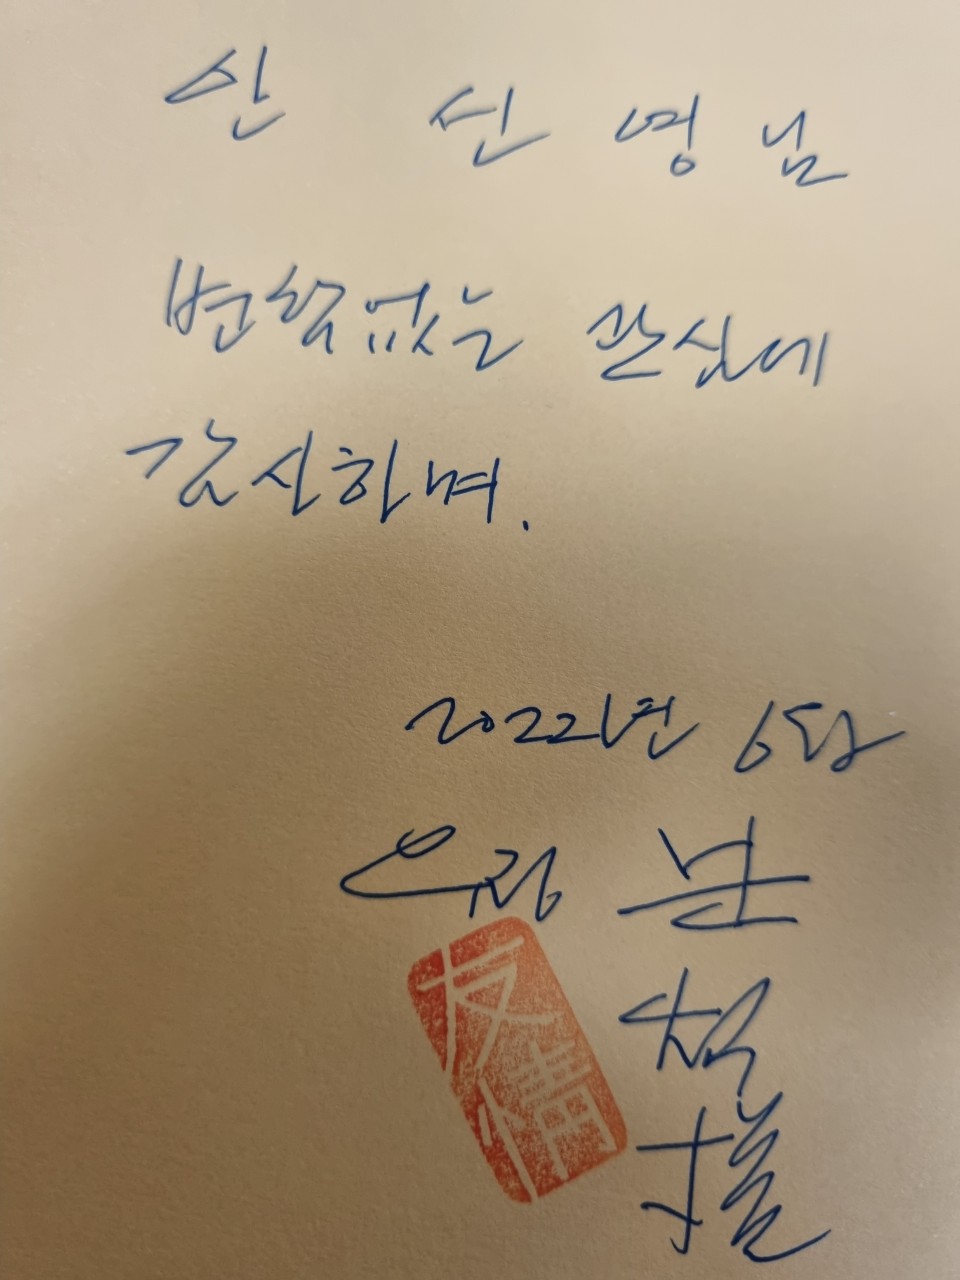 안 선영님
변함없는 관심에
감사하며.
2022년 6월
友情